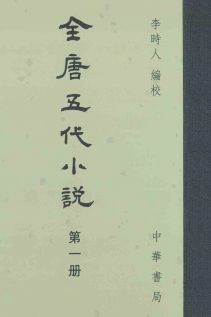 李時人 編校
全唐五代小説
第一册
中華書局